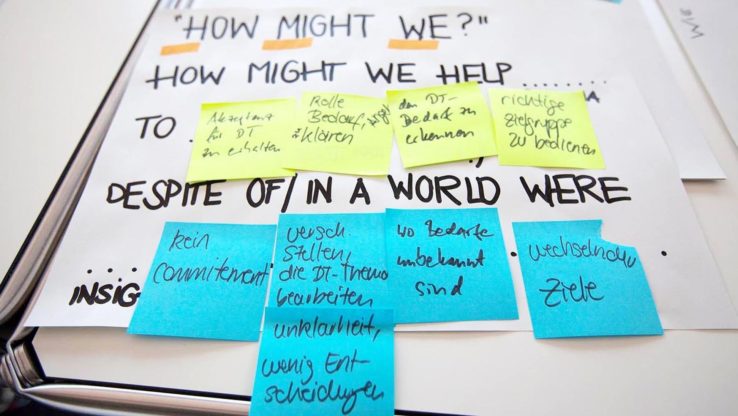 "HOW MIGHT WE?"
HOW MIGHT WE HELP .......
TO .
Akzeptanz
für DT
zu erhalten
Rolle
Bedarf,
klären
den DT-
Bedarf zu
erkennen
richtige
Zielgruppe
zu bedienen
DESPITE OF/IN A WORLD WERE
kein
commitement
versch.
Stellen,
die DT-Thema
bearbeiten
wo Bedarfe
unbekannt
sind
wechselnde
Ziele
INSIG
unklarheit,
wenig Ent-
scheidungen